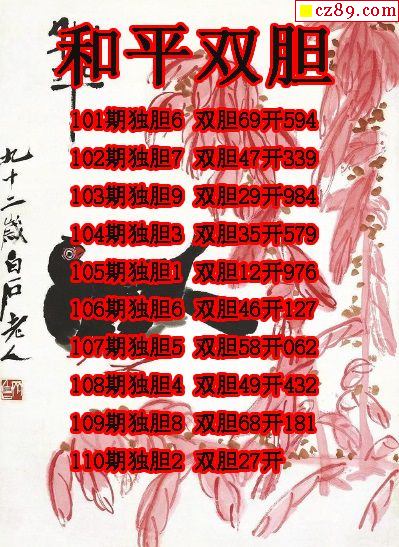 cz89.com
和平双胆
101期独胆6 双胆69开594
102期独胆7 双胆47开339
103期独胆9 双胆29开984
104期独胆3 双胆35开579
105期独胆1 双胆12开976
106期独胆6 双胆46开127
107期独胆5 双胆58开062
108期独胆4 双胆49开432
109期独胆8 双胆68开181
110期独胆2 双胆27开
九十二岁白石老人